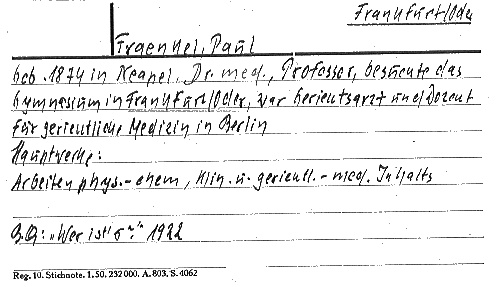 Frankfurt/Oder
Fraenkel, Paul
Geb. 1874 in Neapel, Dr. med., Professor, besuchte das
Gymnasium in Frankfurt/Oder, war Gerichtsarzt und Dozent
für gerichtliche Medizin in Berlin
Hauptwerke:
Arbeiten phys.-chem., klin. u. gerichtl.-med. Inhalts
B.Q.: „Wer ist's?" 1922
Reg. 10. Stichnote. 1. 50. 232 000. A. 803. S. 4062